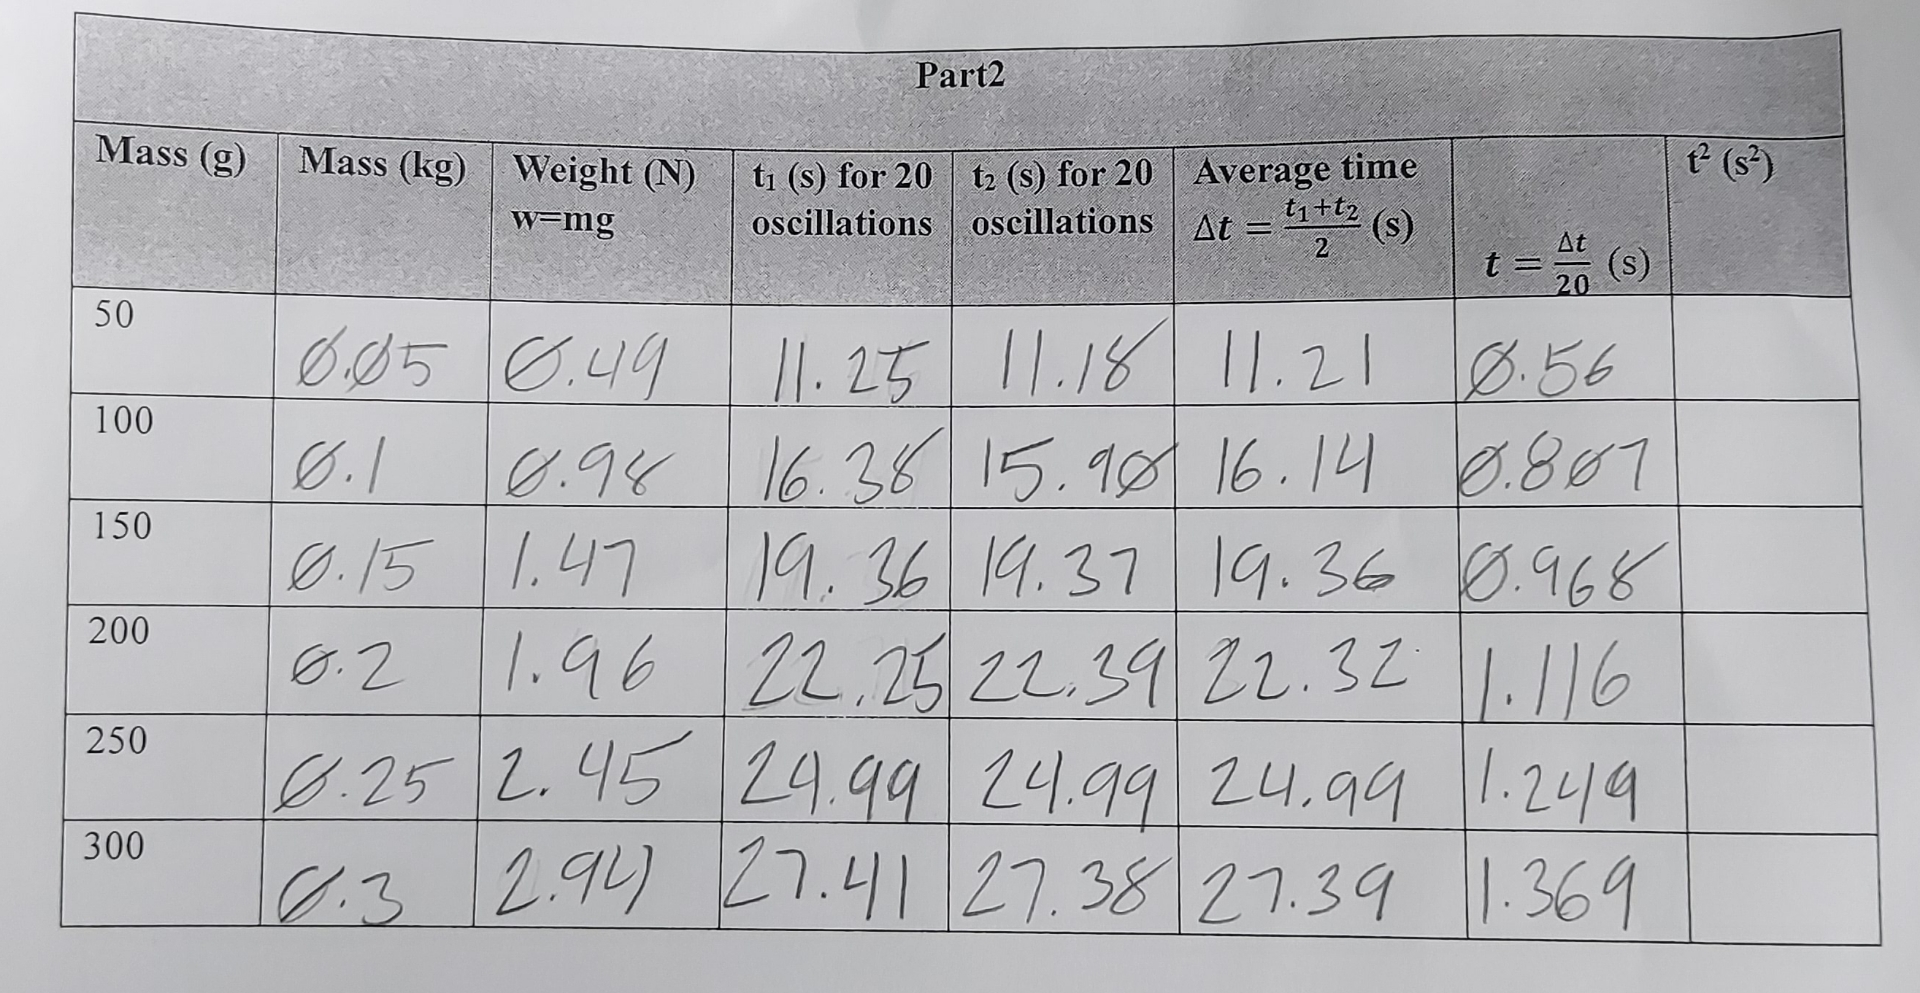 Part2
Mass (g) Mass (kg) Weight (N) w=mg t₁ (s) for 20 oscillations t₂ (s) for 20 oscillations Average time Δt = (t₁+t₂)/2 (s) t = Δt/20 (s) t² (s²)
50 0.05 0.49 11.25 11.18 11.21 0.56
100 0.1 0.98 16.38 15.90 16.14 0.807
150 0.15 1.47 19.36 19.37 19.36 0.968
200 0.2 1.96 22.25 22.39 22.32 1.116
250 0.25 2.45 24.99 24.99 24.99 1.249
300 0.3 2.94 27.41 27.38 27.39 1.369